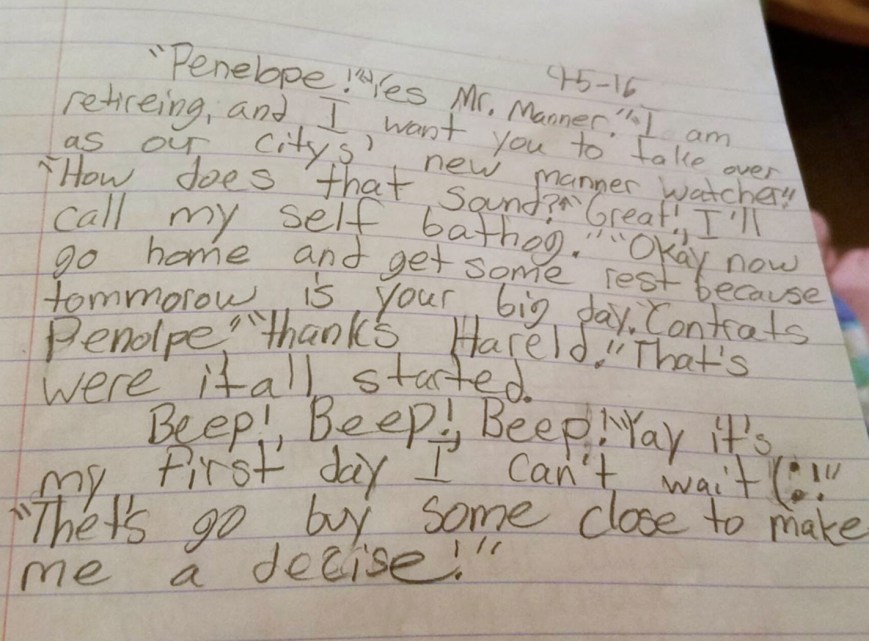 4-5-16
"Penelope!" "Yes Mr. Manner." "I am
retireing, and I want you to take over
as our city,s' new manner watcher!"
"How does that sound?" "Great!, I'll
call my self bathog." "Okay now
go home and get some rest because
tommorow is your big day. Contrats
Penolpe" "thanks Hareld." That's
were it all started.
Beep!, Beep!, Beep! "Yay it's
my first day I can't wait (:!"
"Thet's go buy some close to make
me a decise!"